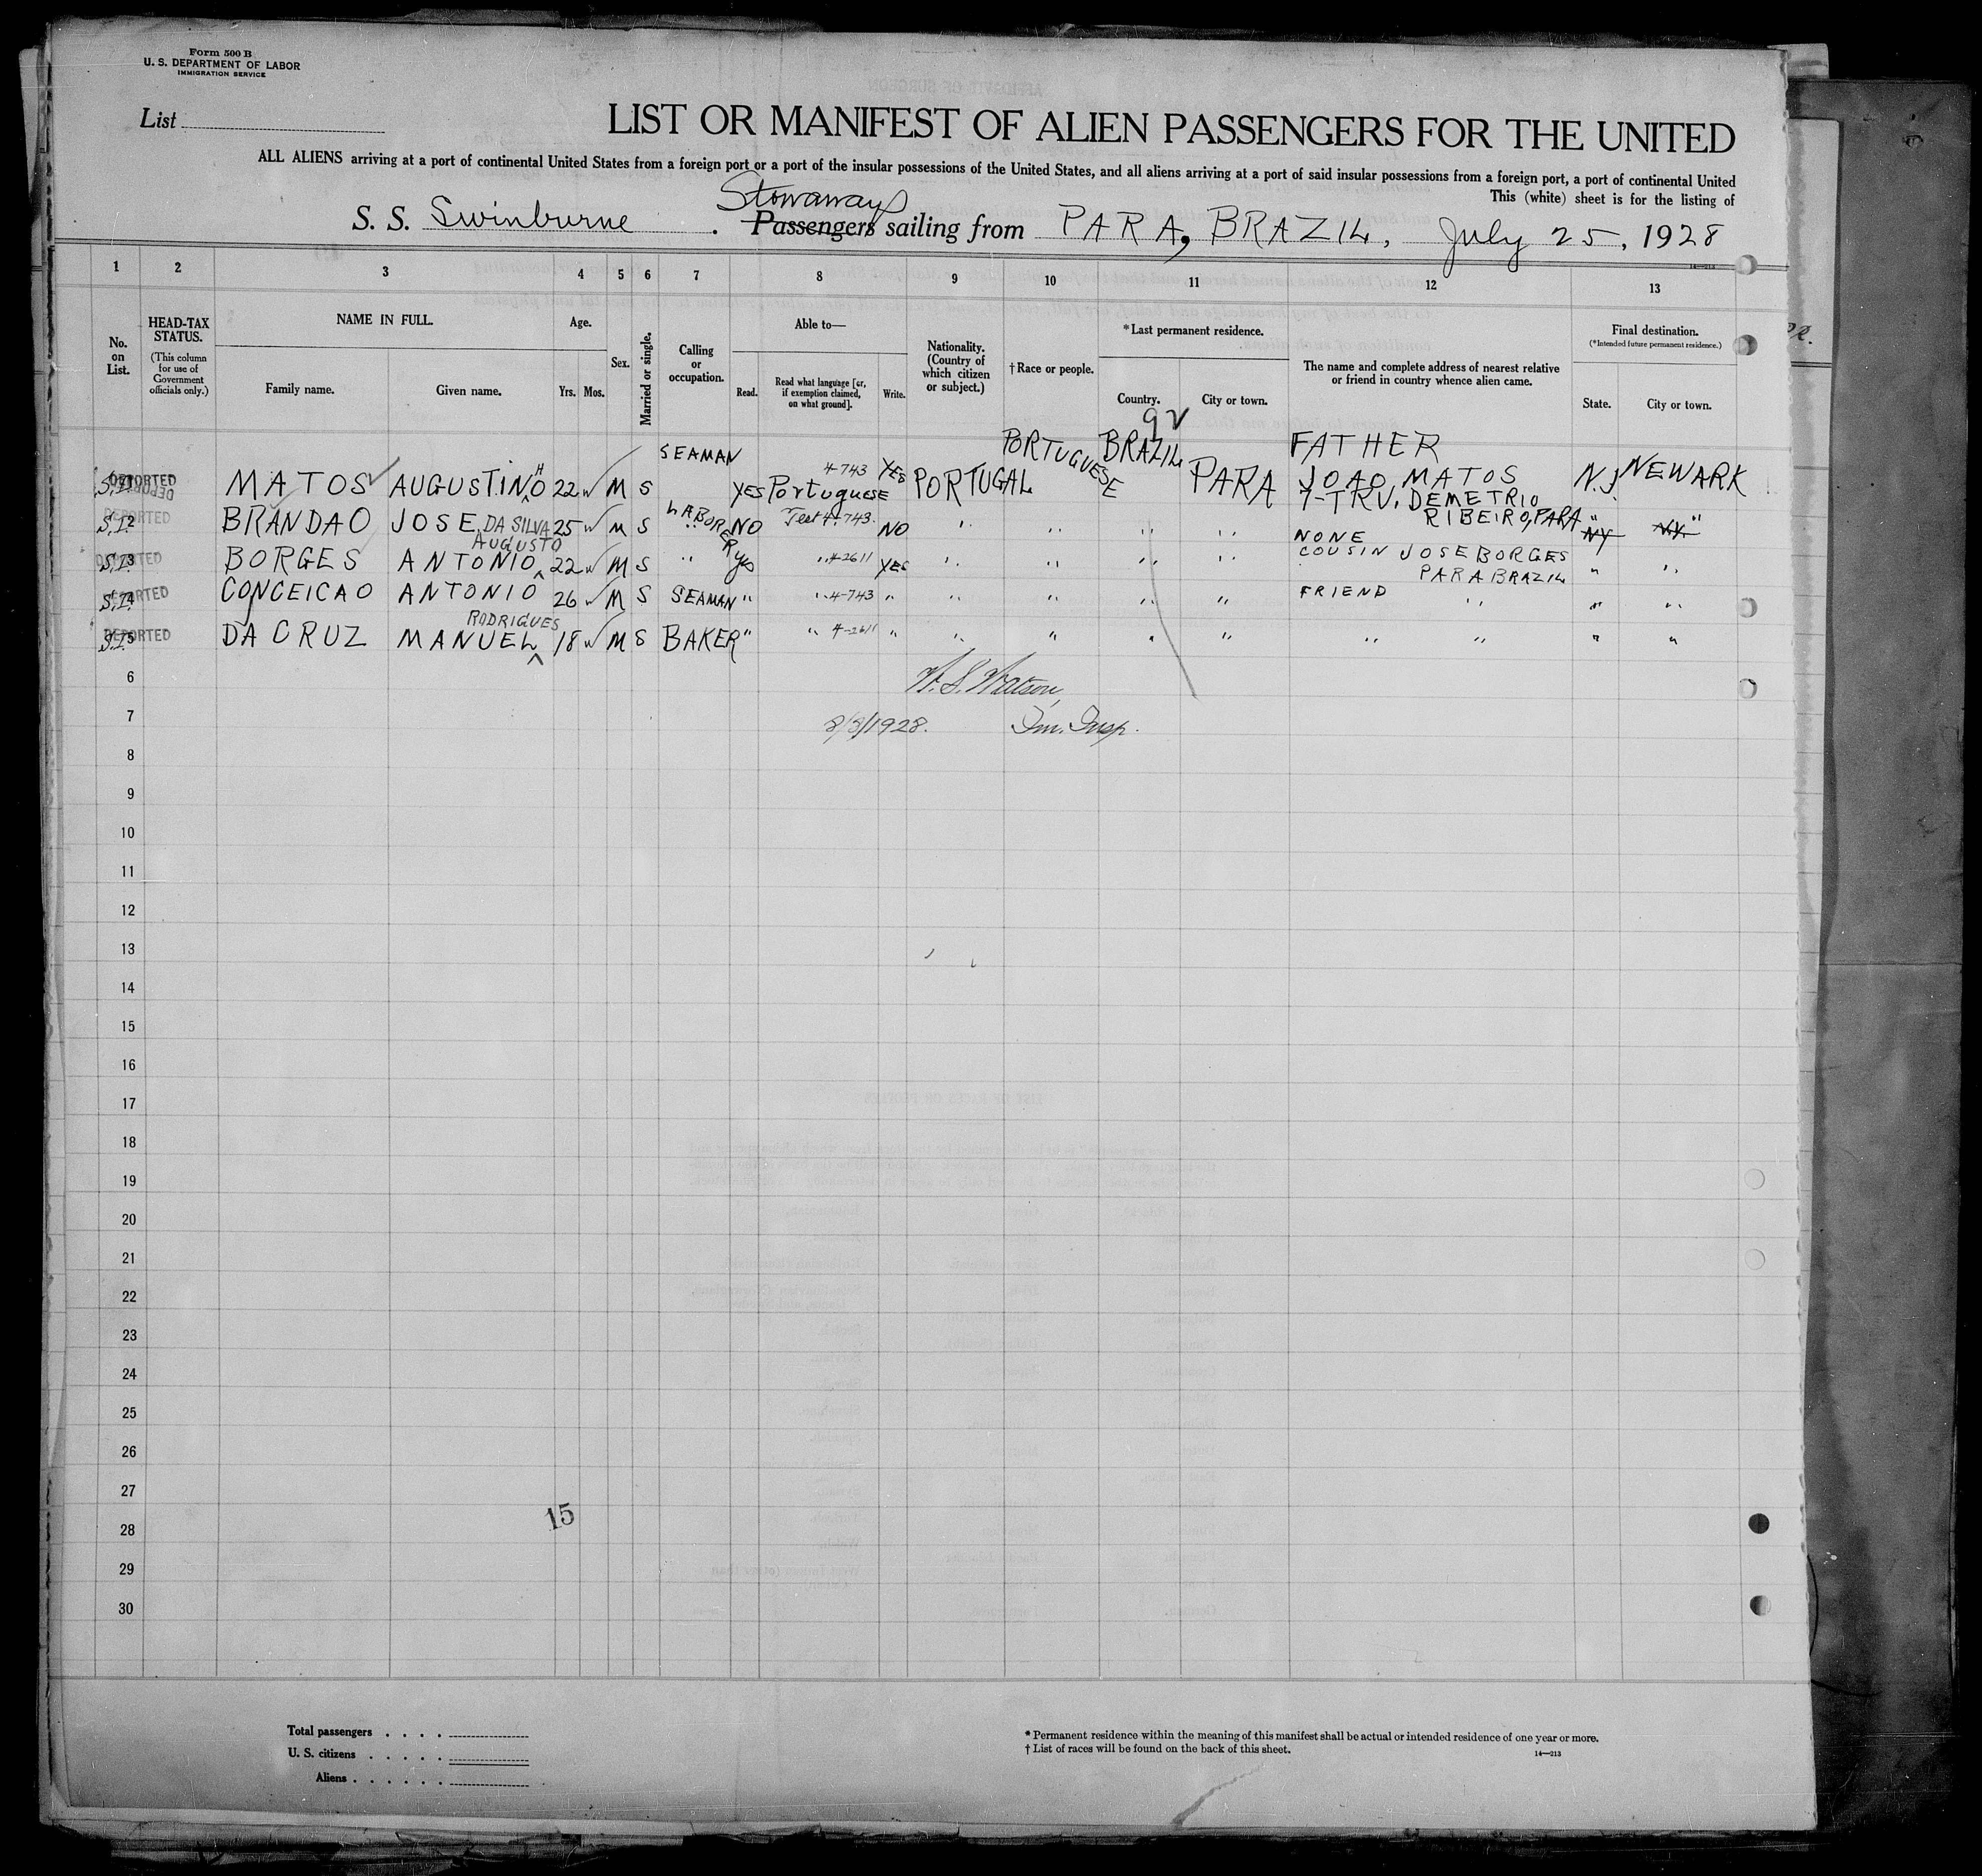 Form 500 B
U. S. DEPARTMENT OF LABOR
IMMIGRATION SERVICE
List
LIST OR MANIFEST OF ALIEN PASSENGERS FOR THE UNITED
ALL ALIENS arriving at a port of continental United States from a foreign port or a port of the insular possessions of the United States, and all aliens arriving at a port of said insular possessions from a foreign port, a port of continental United
This (white) sheet is for the listing of
Stowaways
S. S. Swinburne . Passengers sailing from PARA, BRAZIL, July 25, 1928
14—213
1 2 3 4 5 6 7 8 9 10 11 12 13
No. on List.
HEAD-TAX STATUS.
(This column for use of Government officials only.)
NAME IN FULL.
Family name. Given name.
Age.
Yrs. Mos.
Sex.
Married or single.
Calling or occupation.
Able to—
Read.
Read what language [or, if exemption claimed, on what ground].
Write.
Nationality. (Country of which citizen or subject.)
†Race or people.
*Last permanent residence.
Country. City or town.
The name and complete address of nearest relative or friend in country whence alien came.
Final destination.
(*Intended future permanent residence.)
State. City or town.
DEPORTED S.I. MATOS AUGUSTINHO 22 M S SEAMAN YES Portuguese 4-743 YES PORTUGAL PORTUGUESE BRAZIL PARA FATHER JOAO MATOS 7-TRV. DEMETRIO RIBEIRO, PARA N.J NEWARK
DEPORTED S.I. 2 BRANDAO JOSE DA SILVA 25 M S LABORER NO Test 4-743. NO " " " " NONE NY " N.Y. "
DEPORTED S.I. 3 BORGES ANTONIO AUGUSTO 22 M S " yes " 4-2611 YES " " " " COUSIN JOSE BORGES PARA BRAZIL " "
DEPORTED S.I. 4 CONCEICAO ANTONIO 26 M S SEAMAN " " 4-743 " " " " " FRIEND " " "
DEPORTED S.I. 5 DA CRUZ MANUEL RODRIGUES 18 M S BAKER " " 4-2611 " " " " " " " " "
6
W. S. Watson,
7
8/8/1928. Im. Insp.
8
9
10
11
12
13
14
15
16
17
18
19
20
21
22
23
24
25
26
27
15
28
29
30
Total passengers . . . .
U. S. citizens . . . . .
Aliens . . . . . .
* Permanent residence within the meaning of this manifest shall be actual or intended residence of one year or more.
† List of races will be found on the back of this sheet.
14—213